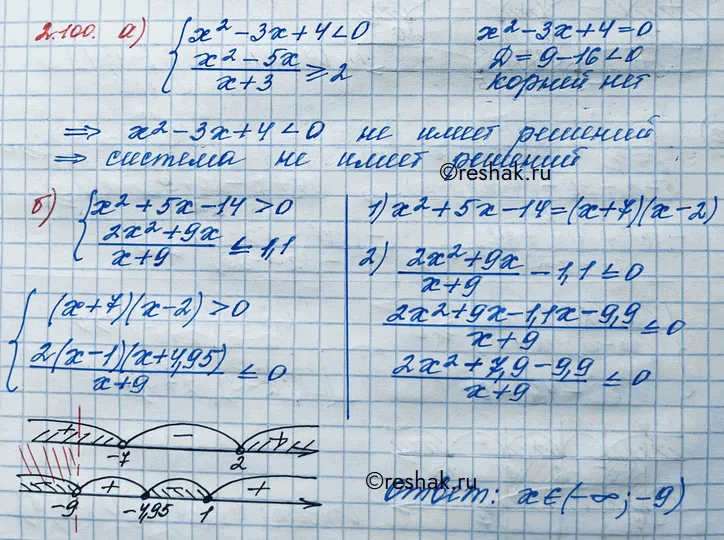 2.100. а) { x² - 3x + 4 < 0
(x² - 5x)/(x + 3) ≥ 2
x² - 3x + 4 = 0
D = 9 - 16 < 0
корней нет
⇒ x² - 3x + 4 < 0 не имеет решений
⇒ система не имеет решений
©reshak.ru
б) { x² + 5x - 14 > 0
(2x² + 9x)/(x + 9) ≤ 1,1
{ (x + 7)(x - 2) > 0
2(x - 1)(x + 4,95)/(x + 9) ≤ 0
1) x² + 5x - 14 = (x + 7)(x - 2)
2) (2x² + 9x)/(x + 9) - 1,1 ≤ 0
(2x² + 9x - 1,1x - 9,9)/(x + 9) ≤ 0
(2x² + 7,9 - 9,9)/(x + 9) ≤ 0
+ - +
-7 2
+ +
-9 -4,95 1
©reshak.ru
Ответ: x ∈ (-∞; -9)